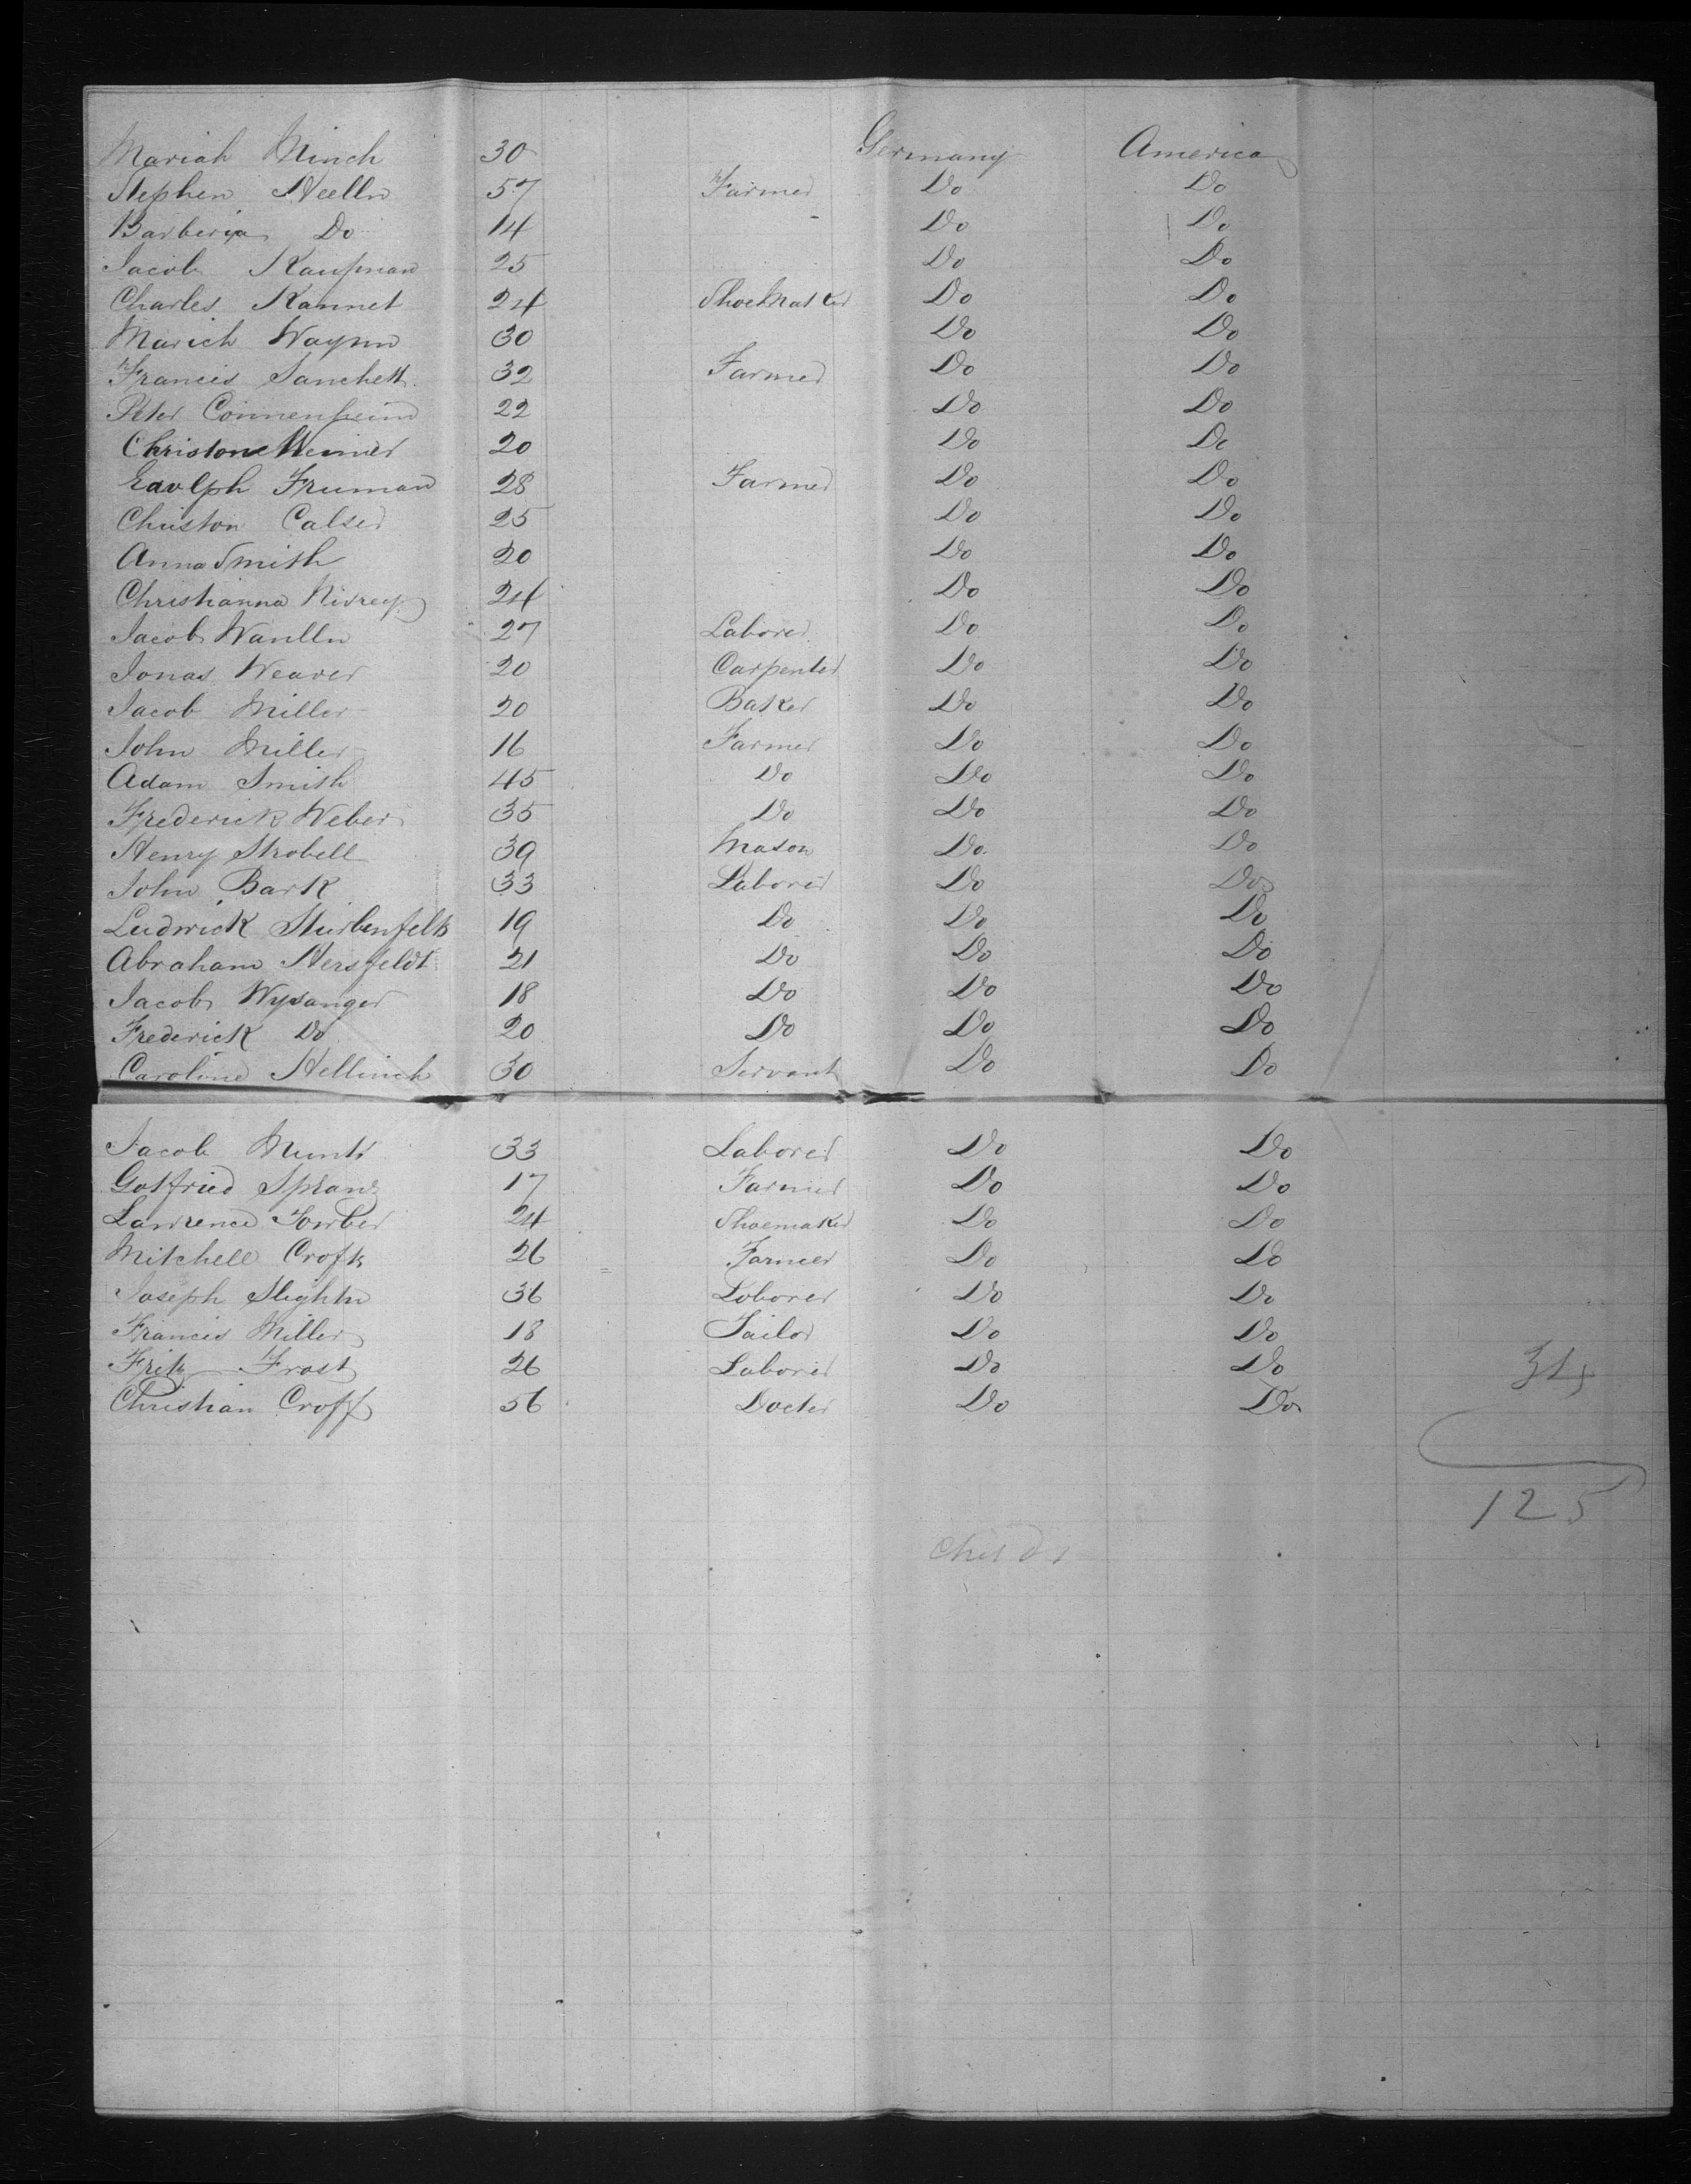 Mariah Minch 30 Germany America
Stephen Heelln 57 Farmer Do Do
Barberia Do 14 Do Do
Jacob Kaufman 25 Do Do
Charles Kannet 24 ShoeMaker Do Do
Mariah Waynn 30 Do Do
Francis Sanchett 32 Farmer Do Do
Peter 22 Do Do
Christone Weimer 20 Do Do
Edolph Fruman 28 Farmer Do Do
Christon Calser 25 Do Do
Anna Smith 20 Do Do
Christianna 24 Do Do
Jacob Wanlln 27 Laborer Do Do
Jonas Weaver 20 Carpenter Do Do
Jacob Miller 20 Baker Do Do
John Miller 16 Farmer Do Do
Adam Smith 45 Do Do Do
Frederick Weber 35 Do Do Do
Henry Strobell 39 Mason Do Do
John Bark 33 Laborer Do Do
Ludwick 19 Do Do Do
Abraham Hersfeldt 21 Do Do Do
Jacob Wysanger 18 Do Do Do
Frederick Do 20 Do Do Do
Caroline Hellinch 30 Servant Do Do
Jacob Munts 33 Laborer Do Do
Gotfried Sprang 17 Farmer Do Do
Lawrence Fowber 24 Shoemaker Do Do
Mitchell Crofts 26 Farmer Do Do
Joseph Slightn 36 Loborer Do Do
Francis Miller 18 Tailor Do Do
Fritz Frost 26 Laborer Do Do
Christian Croff 56 Docter Do Do
34
125